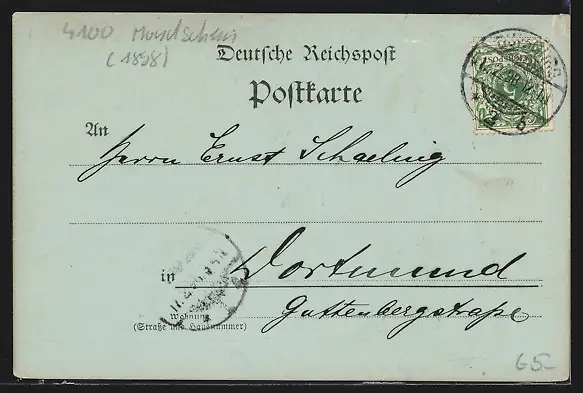 4100 Mondschein
(1898)
Deutsche Reichspost
Postkarte
An
Herrn Ernst Schaeling
in Dortmund
Wohnung
(Straße und Hausnummer)
Guttenbergstraße
65-